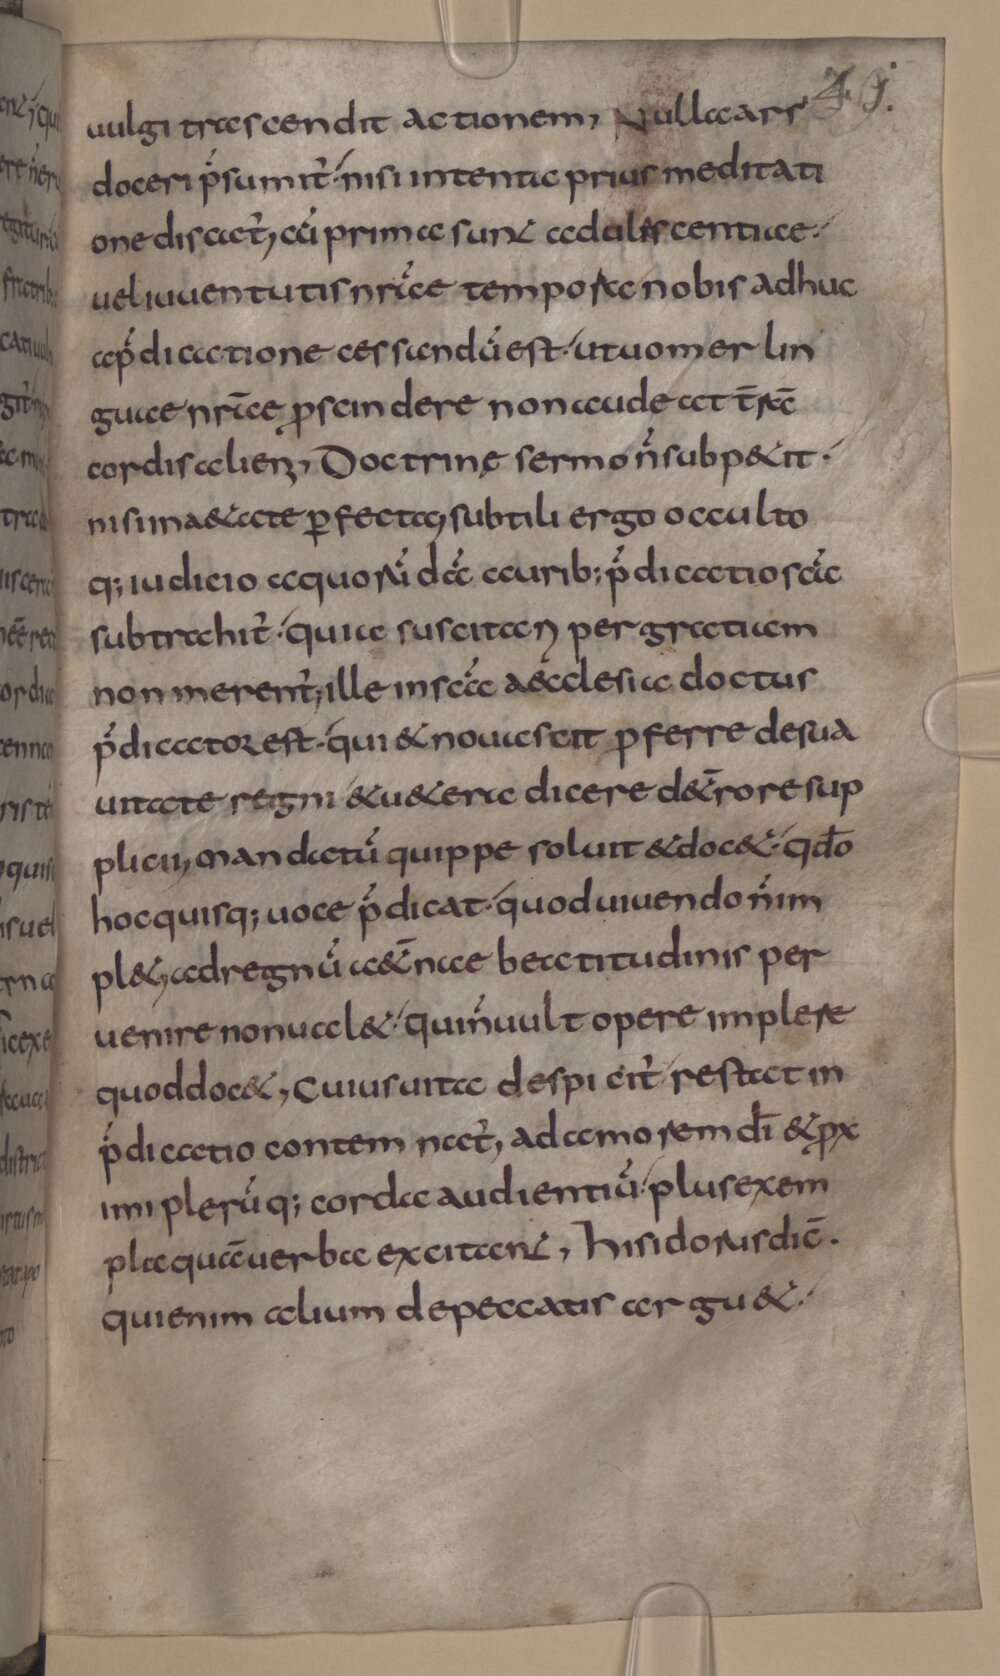 41.
uulgi trascendit actionem, Nulla ars
doceri p̄sumit̄ · nisi intenta prius meditati
one discat̄, cū prima sunt adulescentiae ·
uel iuuentutis nr̄ae tempora nobis adhuc
a p̄dicatione cessandū est · ut uomer lin
guae nr̄ae ꝓscindere non audeat t̄rā
cordis alieni, Doctrinę sermo n̄ subpetit ·
nisi in aetate perfecta, subtili ergo occulto
q; iudicio a quorū dā aurib; p̄dicatio scā
subtrahit̄ · quia suscitari per gratiam
non merent̄, ille in scā aecclesia doctus
p̄dicator est · qui & noua scit ꝓferre de sua
uitate regni & uetera dicere de t̄rore sup
plicii, Mandatū quippe soluit & docet · qđo
hoc quisq; uoce p̄dicat · quod uiuendo n̄ im
plet, ad regnū aet̄nae beatitudinis per
uenire non ualet · qui n̄ uult opere implere
quod docet, Cuius uita despicit̄ restat in
p̄dicatio contemnat̄, ad amorem dī & ꝓx
imi plerūq; corda audientiū · plus exem
pla quā uerba excitant, hisidorus dic̄ ·
qui enim alium de peccatis arguet ·